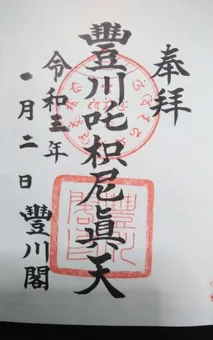 奉拝
豐川吒枳尼眞天
令和三年
一月二日
豐川閣
豐川
閣印